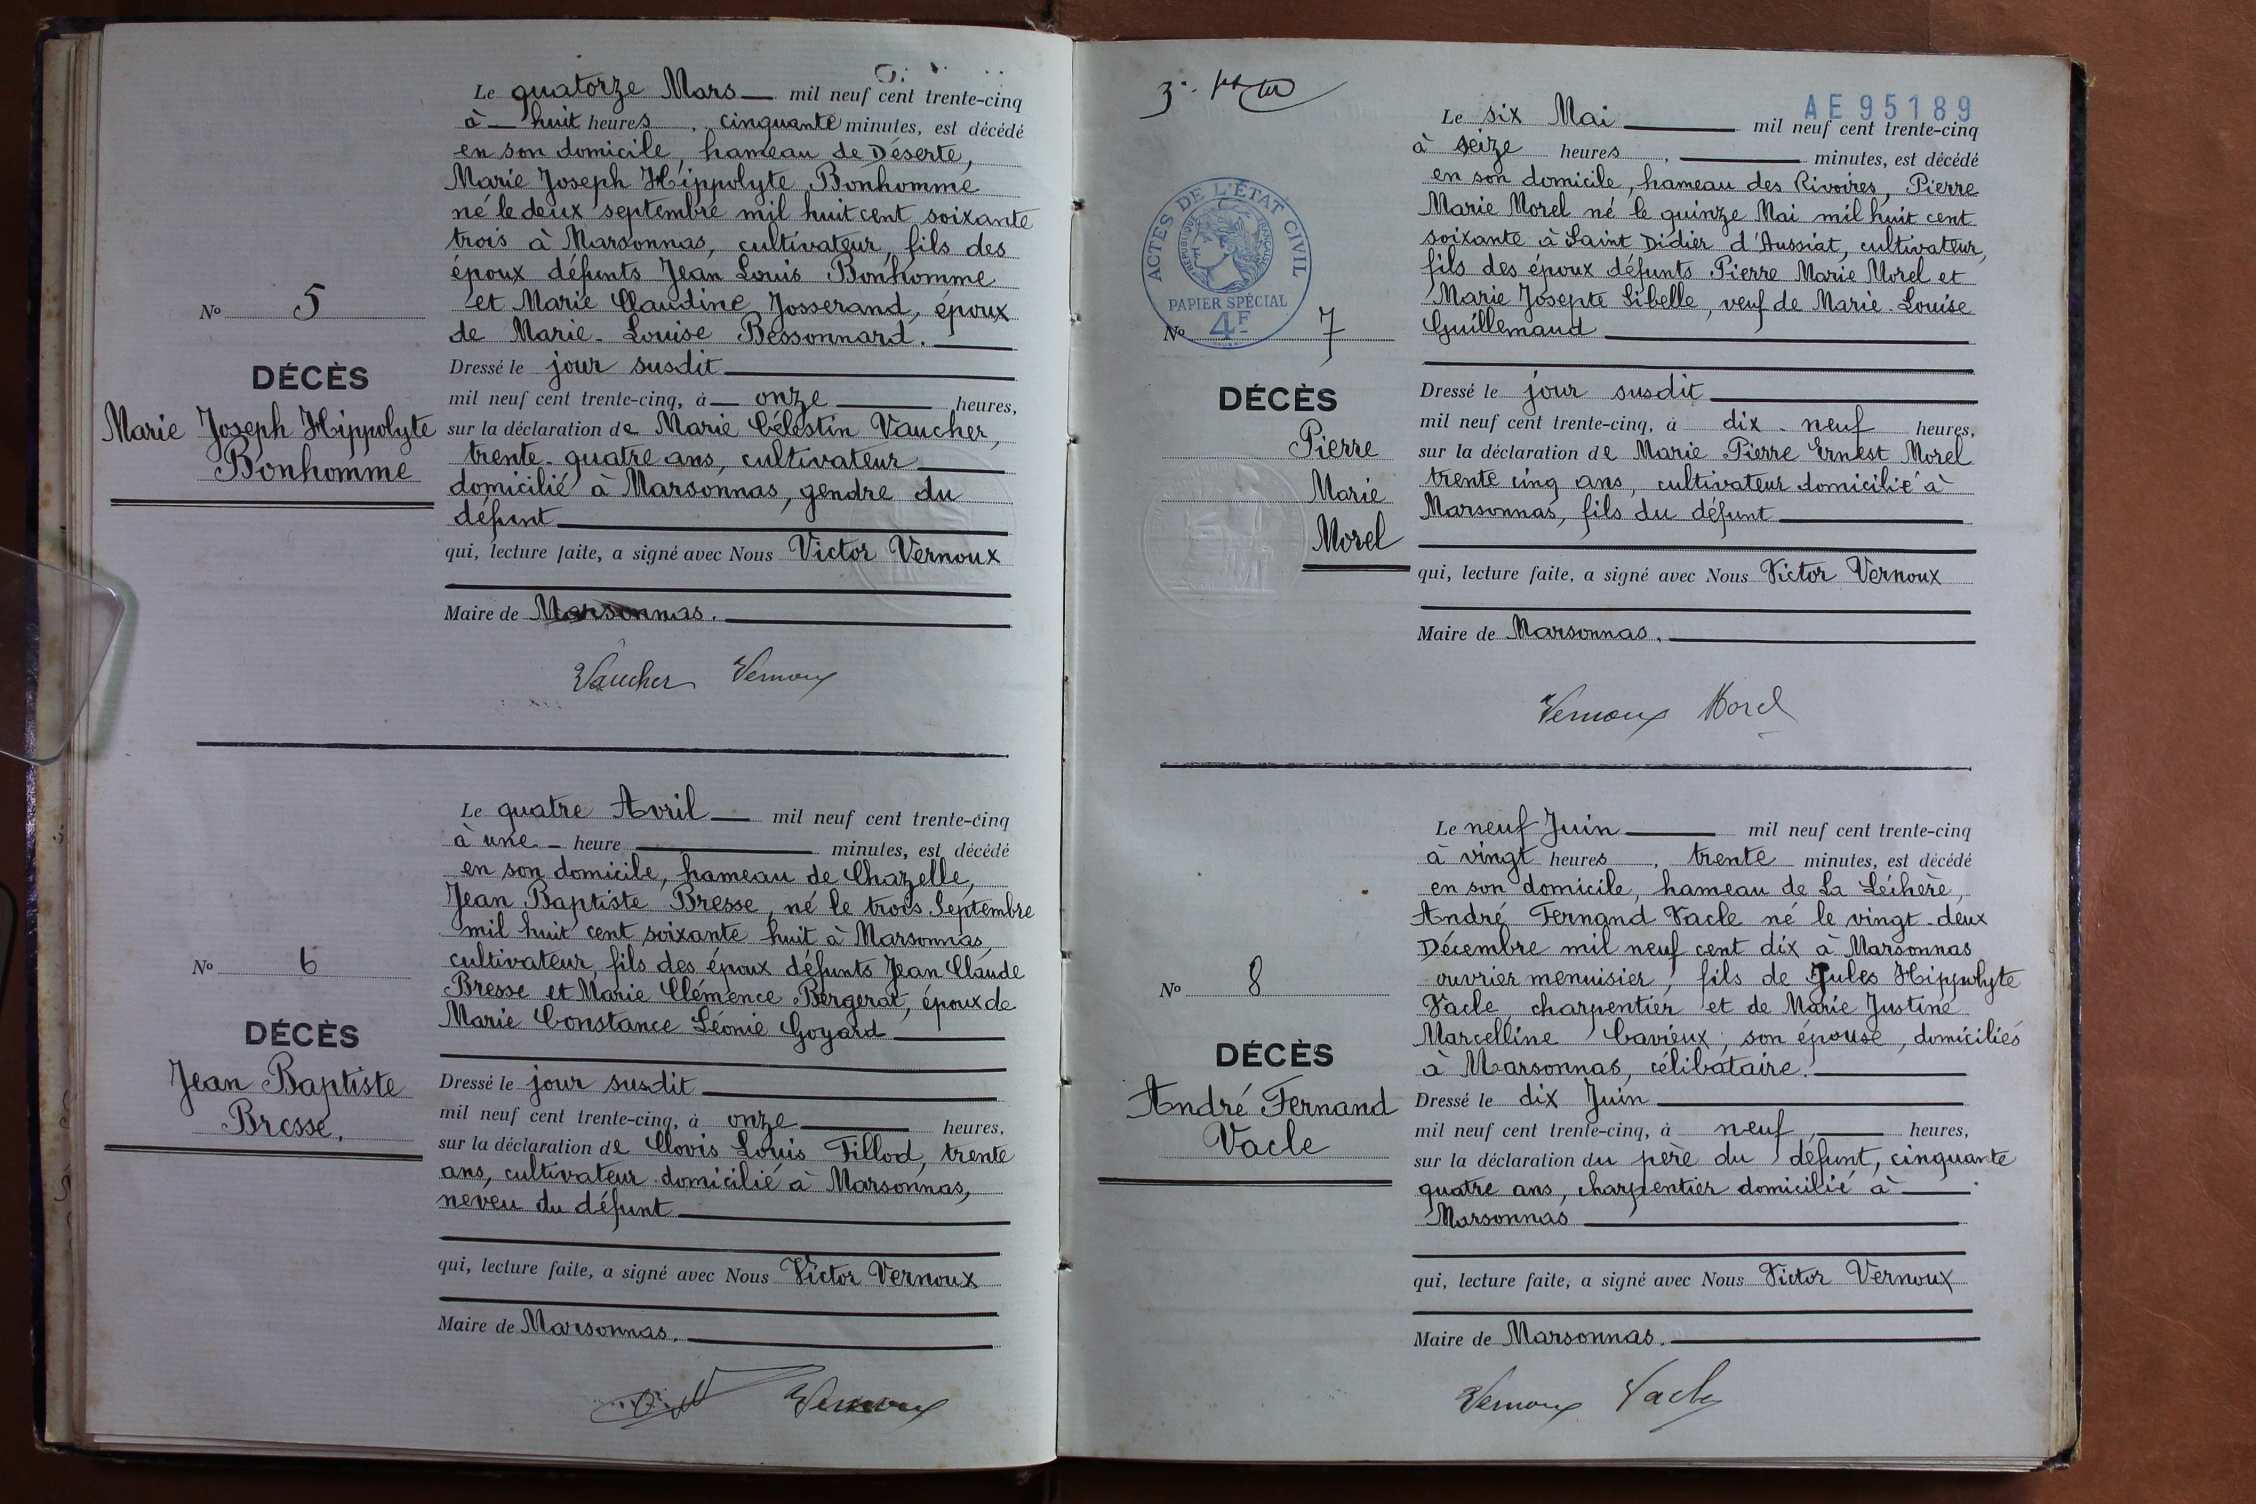 Le quatorze Mars mil neuf cent trente-cinq
à huit heures, cinquante minutes, est décédé
en son domicile, hameau de Déserte,
Marie Joseph Hippolyte Bonhomme
né le deux septembre mil huit cent soixante
trois à Marsonnas, cultivateur, fils des
époux défunts Jean Louis Bonhomme
et Marie Claudine Josserand, époux
de Marie-Louise Bessonnard.
No 5
DÉCÈS
Marie Joseph Hippolyte
Bonhomme
Dressé le jour susdit
mil neuf cent trente-cinq, à onze heures,
sur la déclaration de Marie Célestin Vaucher,
trente-quatre ans, cultivateur
domicilié à Marsonnas, gendre du
défunt
qui, lecture faite, a signé avec Nous Victor Vernoux
Maire de Marsonnas.
Vaucher Vernoux
Le quatre Avril mil neuf cent trente-cinq
à une heure minutes, est décédé
en son domicile, hameau de Chazelle,
Jean Baptiste Bresse, né le trois Septembre
mil huit cent soixante huit à Marsonnas,
cultivateur, fils des époux défunts Jean Claude
Bresse et Marie Clémence Bergerat, époux de
Marie Constance Léonie Goyard
No 6
DÉCÈS
Jean Baptiste
Bresse.
Dressé le jour susdit
mil neuf cent trente-cinq, à onze heures,
sur la déclaration de Clovis Louis Fillod, trente
ans, cultivateur domicilié à Marsonnas,
neveu du défunt
qui, lecture faite, a signé avec Nous Victor Vernoux
Maire de Marsonnas.
Vernoux
AE95189
ACTES DE L'ÉTAT CIVIL
RÉPUBLIQUE FRANÇAISE
PAPIER SPÉCIAL
4F
Le six Mai mil neuf cent trente-cinq
à seize heures, minutes, est décédé
en son domicile, hameau des Rivoires, Pierre
Marie Morel né le quinze Mai mil huit cent
soixante à Saint Didier d'Aussiat, cultivateur,
fils des époux défunts Pierre Marie Morel et
Marie Josepte Sibelle, veuf de Marie-Louise
Guillemaud
No 7
DÉCÈS
Pierre
Marie
Morel
Dressé le jour susdit
mil neuf cent trente-cinq, à dix-neuf heures,
sur la déclaration de Marie Pierre Ernest Morel
trente cinq ans, cultivateur domicilié à
Marsonnas, fils du défunt
qui, lecture faite, a signé avec Nous Victor Vernoux
Maire de Marsonnas.
Vernoux Morel
Le neuf Juin mil neuf cent trente-cinq
à vingt heures, trente minutes, est décédé
en son domicile, hameau de La Léchère,
André Fernand Vacle né le vingt-deux
Décembre mil neuf cent dix à Marsonnas
ouvrier menuisier, fils de Jules Hippolyte
Vacle, charpentier et de Marie Justine
Marcelline Cavieux, son épouse, domiciliés
à Marsonnas, célibataire.
No 8
DÉCÈS
André Fernand
Vacle
Dressé le dix Juin
mil neuf cent trente-cinq, à neuf, heures,
sur la déclaration du père du défunt, cinquante
quatre ans, charpentier domicilié à
Marsonnas
qui, lecture faite, a signé avec Nous Victor Vernoux
Maire de Marsonnas.
Vernoux Vacle